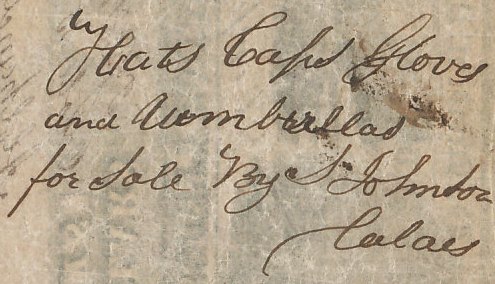 Hats Caps Gloves
and Uumbrellas
for Sale By S Johnson
Calais